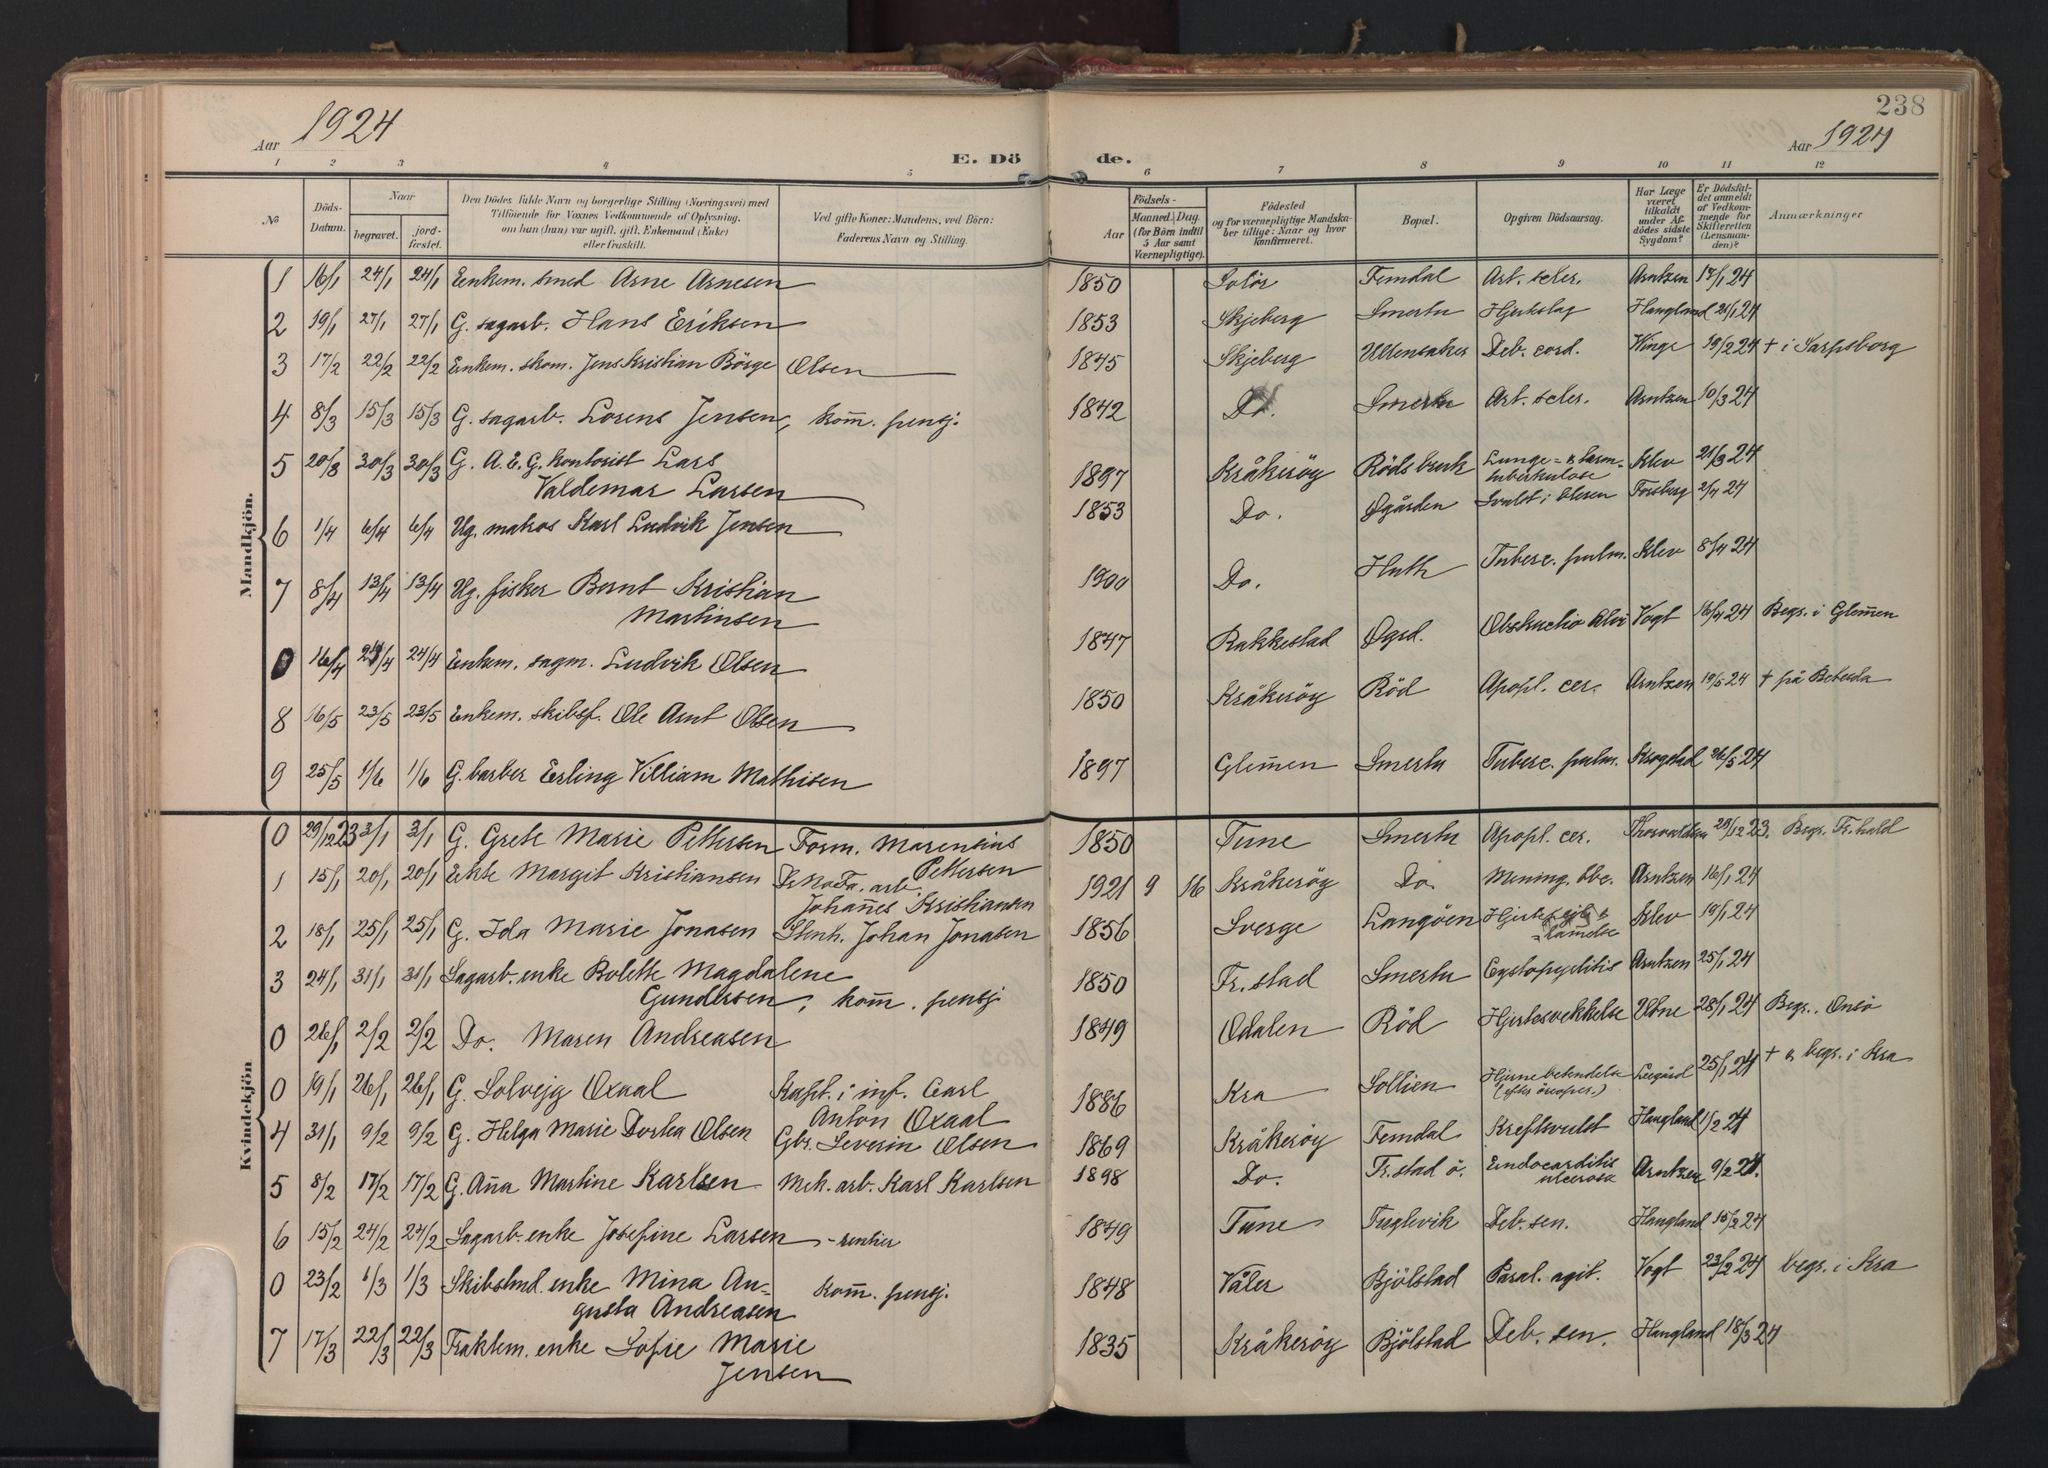 238
Aar 1924
E. Dö de.
Aar 1924
1 2 3 4 5 6 7 8 9 10 11 12
No
Döds-Datum.
Naar
begravet.
jord-fæstet.
Den Dödes fulde Navn og borgerlige Stilling (Næringsvei) med
Tilföiende for Voxnes Vedkommende af Oplysning,
om han (hun) var ugift, gift, Enkemand (Enke)
eller fraskilt.
Ved gifte Koner: Mandens, ved Börn:
Faderens Navn og Stilling.
Födsels-
Aar
Maaned. Dag.
(for Börn indtil
5 Aar samt
Værnepligtige).
Födested
og for værnepligtige Mandska-
ber tillige: Naar og hvor
konfirmeret.
Bopæl.
Opgiven Dödsaarsag.
Har Læge
været
tilkaldt
under Af-
dödes sidste
Sygdom?
Er Dödsfal-
det anmeldt
af Vedkom-
mende for
Skifteretten
(Lensman-
den)?
Anmærkninger
Mandkjön.
1 16/1 24/1 24/1 Enkem. smed Arne Arnesen 1850 Solör Femdal Art. scler. Arntzen 17/1 24
2 19/1 27/1 27/1 G. sagarb. Hans Eriksen 1853 Skjeberg Smertu Hjerteslag Haugland 21/1 24
3 17/2 22/2 22/2 Enkem. skom. Jens Kristian Börge Olsen 1845 Skjeberg Ullensaker Deb. cord. Winge 19/2 24 + i Sarpsborg
4 8/3 15/3 15/3 G. sagarb. Lorens Jensen, kom̄. pensj. 1842 Do. Smertu Art. scler. Arntzen 10/3 24
5 20/3 30/3 30/3 G. A.E.G. kontorist Lars
Valdemar Larsen 1897 Kråkeröy Rödsbruk Lunge- & tarm-
tuberkulose Klev 21/3 24
6 1/4 6/4 6/4 Ug. matros Karl Ludvik Jensen 1853 Do. Øgården Svulst i blæren Forsberg 2/4 24
7 8/4 13/4 13/4 Ug. fisker Bernt Kristian
Martinsen 1900 Do. Huth Tuberc. pulm. Klev 8/4 24
0 16/4 24/4 24/4 Enkem. sagm. Ludvik Olsen 1847 Rakkestad Øgrd. Obstructio alvi Vogt 16/4 24 Begr. i Glem̄en
8 16/5 23/5 23/5 Enkem. skibsf. Ole Arnt Olsen 1850 Kråkeröy Röd Apopl. cer. Arntzen 19/5 24 + på Betesda
9 25/5 1/6 1/6 G. barber Erling Villiam Mathisen 1897 Glem̄en Smertu Tuberc. pulm. Krogstad 26/5 24
Kvindekjön
0 29/12 23 3/1 3/1 G. Grete Marie Pettersen Form. Marensius
Pettersen 1850 Tune Smertu Apopl. cer. Thorvaldsen 29/12 23. Begr. Fr.hald
1 15/1 20/1 20/1 Ekte Margit Kristiansen arb.
Johan̄es Kristiansen 1921 9 16 Kråkeröy Do. Mening. tbc. Arntzen 16/1 24
2 18/1 25/1 25/1 G. Ida Marie Jonasen Stenh. Johan Jonasen 1856 Sverge Langöen Klev 19/1 24
3 24/1 31/1 31/1 Sagarb. enke Bolette Magdalene
Gundersen, kom̄. pensj. 1850 Fr.stad Smertu Cystopyelitis Arntzen 25/1 24
0 26/1 2/2 2/2 Do. Maren Andreasen 1849 Odalen Röd Hjertesvekkelse Ubne 28/1 24 Begr. Onsö
0 19/1 26/1 26/1 G. Solvejg Oxaal Kapt. i inf. Carl
Anton Oxaal 1886 Kra Sollien Hjernebetendelse
(efter öreoper.) Leegård 25/1 24 + & begr. i Kra
4 31/1 9/2 9/2 G. Helga Marie Dortea Olsen Gbr. Severin Olsen 1869 Kråkeröy Femdal Kreftsvulst Haugland 1/2 24
5 8/2 17/2 17/2 G. An̄a Martine Karlsen Mek. arb. Karl Karlsen 1898 Do. Fr.stad ö. Endocarditis
ulcerosa Arntzen 9/2 24.
6 15/2 24/2 24/2 Sagarb. enke Josefine Larsen - rentier 1849 Tune Fuglevik Deb. sen. Haugland 15/2 24
0 23/2 1/3 1/3 Skibstmd. enke Mina Au-
gusta Andreasen kom̄. pensj. 1848 Våler Bjölstad Paral. agit. Vogt 23/2 24 begr. i Kra
7 17/3 22/3 22/3 Traktem. enke Sofie Marie
Jensen 1835 Kråkeröy Bjölstad Deb. sen. Haugland 18/3 24